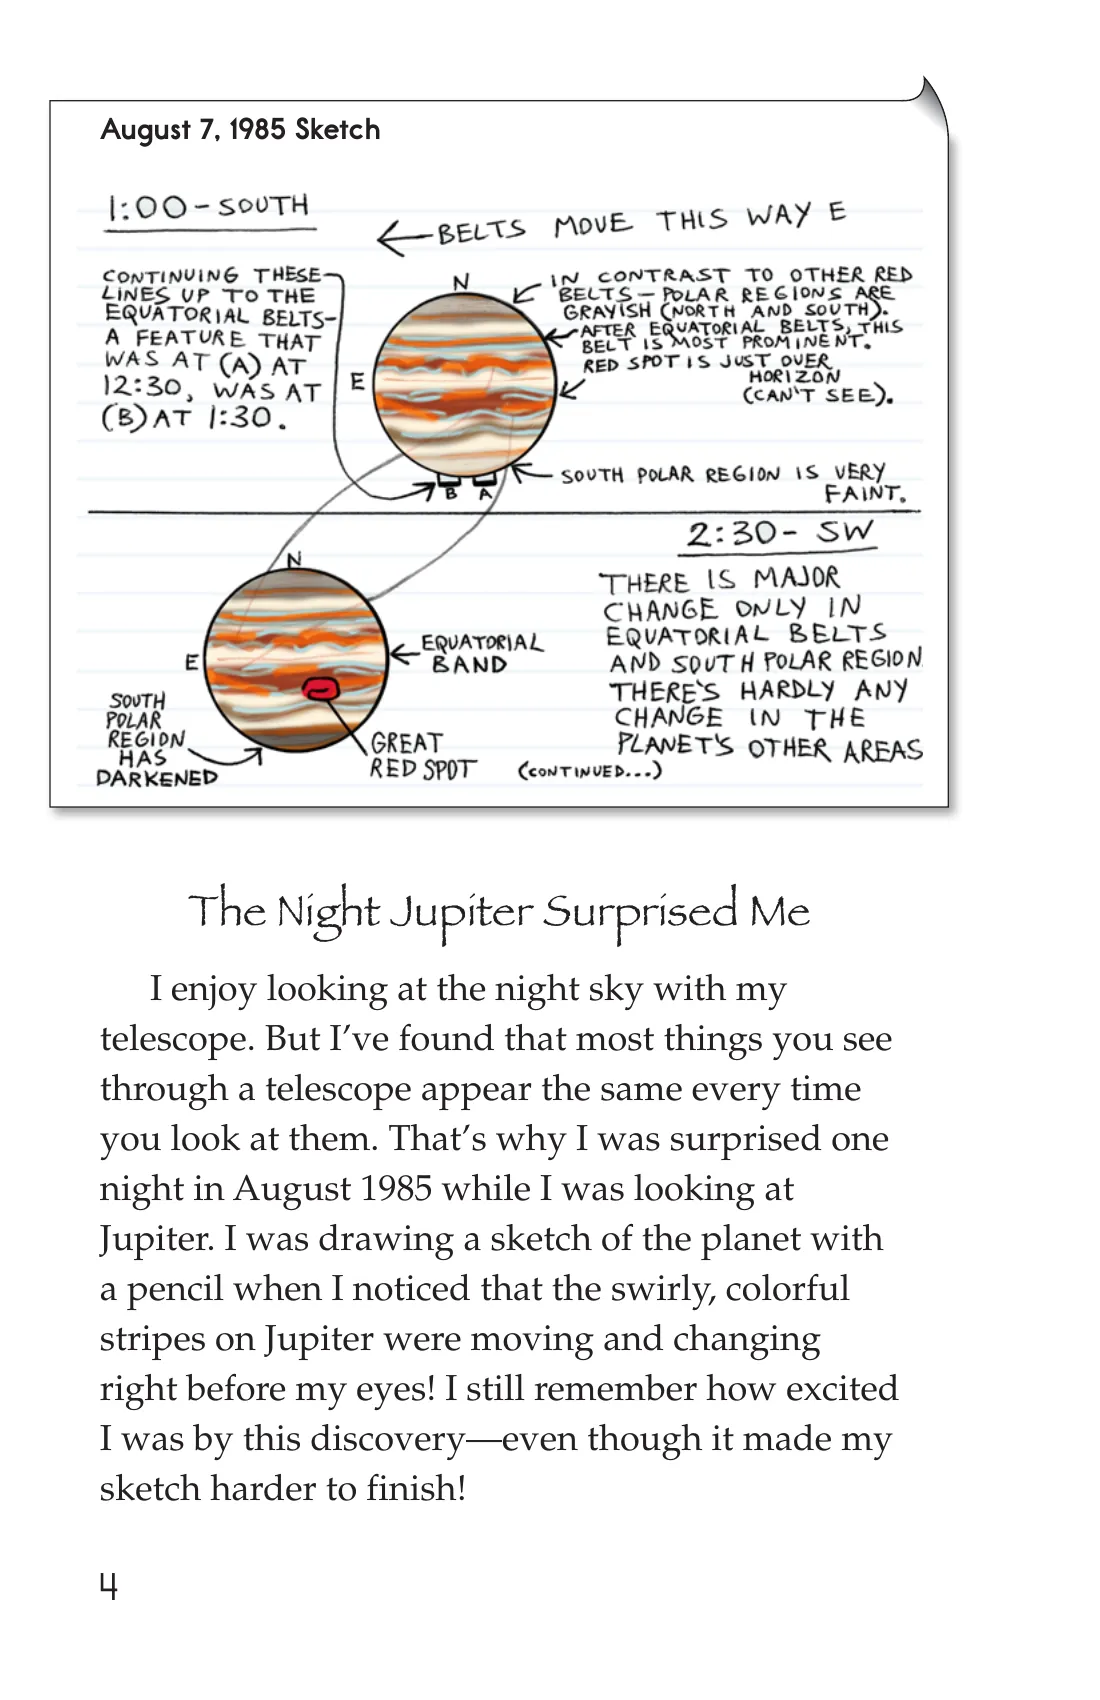 August 7, 1985 Sketch
1:00 - SOUTH
← BELTS MOVE THIS WAY E
CONTINUING THESE
LINES UP TO THE
EQUATORIAL BELTS-
A FEATURE THAT
WAS AT (A) AT
12:30, WAS AT
(B) AT 1:30.
N
E
B A
IN CONTRAST TO OTHER RED
BELTS — POLAR REGIONS ARE
GRAYISH (NORTH AND SOUTH).
AFTER EQUATORIAL BELTS, THIS
BELT IS MOST PROMINENT.
RED SPOT IS JUST OVER
HORIZON
(CAN'T SEE).
SOUTH POLAR REGION IS VERY
FAINT.
2:30 - SW
N
E
EQUATORIAL
BAND
SOUTH
POLAR
REGION
HAS
DARKENED
GREAT
RED SPOT
THERE IS MAJOR
CHANGE ONLY IN
EQUATORIAL BELTS
AND SOUTH POLAR REGION
THERE'S HARDLY ANY
CHANGE IN THE
PLANET'S OTHER AREAS
(CONTINUED...)
The Night Jupiter Surprised Me
I enjoy looking at the night sky with my
telescope. But I've found that most things you see
through a telescope appear the same every time
you look at them. That's why I was surprised one
night in August 1985 while I was looking at
Jupiter. I was drawing a sketch of the planet with
a pencil when I noticed that the swirly, colorful
stripes on Jupiter were moving and changing
right before my eyes! I still remember how excited
I was by this discovery—even though it made my
sketch harder to finish!
4